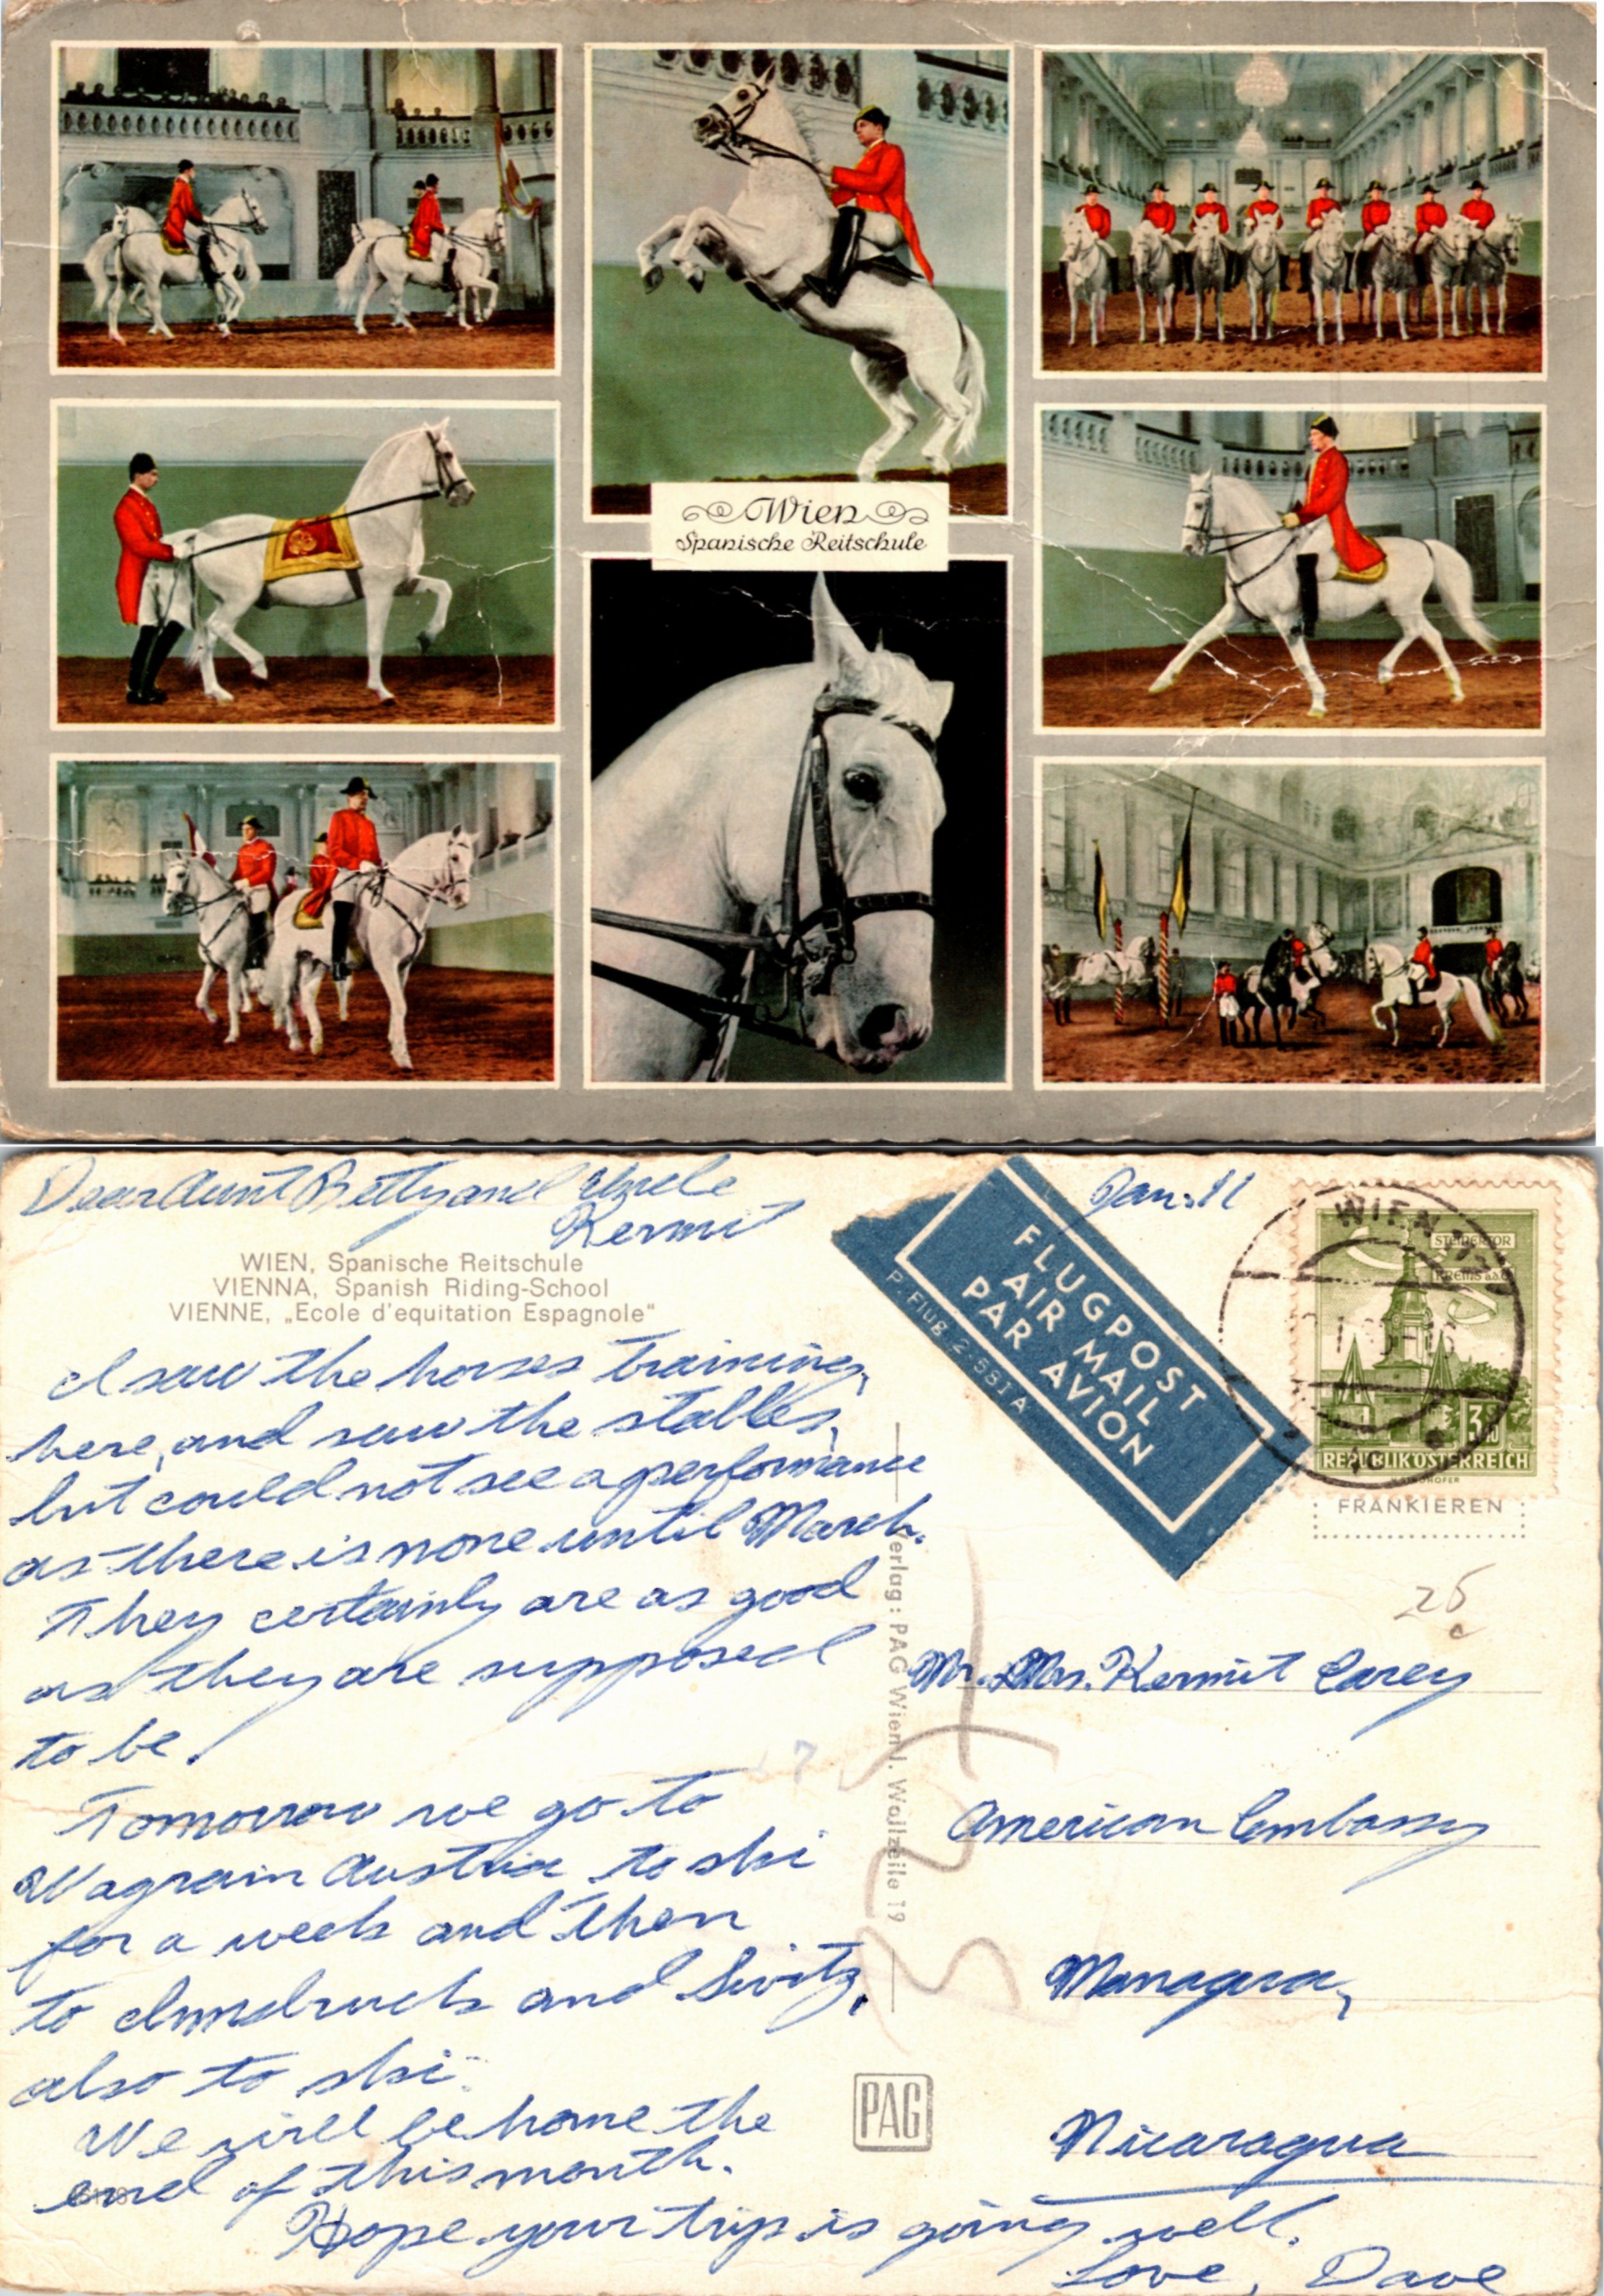 Wien
Spanische Reitschule
Dear Aunt Betty and Uncle
Kermit
Jan. 11
WIEN, Spanische Reitschule
VIENNA, Spanish Riding-School
VIENNE, „Ecole d'equitation Espagnole"
FLUGPOST
AIR MAIL
PAR AVION
P. Flug 2-581 A
WIEN
STEINERTOR
KREMS a.d.D.
3.50
REPUBLIK ÖSTERREICH
FRANKIEREN
I saw the horses training,
here, and saw the stables,
but could not see a performance
as there is none until March.
They certainly are as good
as they are supposed
to be!
Tomorrow we go to
Wagrain Austria to ski
for a week and then
to Innsbruck and Switz,
also to ski.
We will be home the
end of this month.
Hope your trip is going well.
Love, Dave
Verlag: PAG Wien I. Wollzeile 19
PAG
25
c
Mr. & Mrs. Kermit Carey
American Embassy
Managua,
Nicaragua